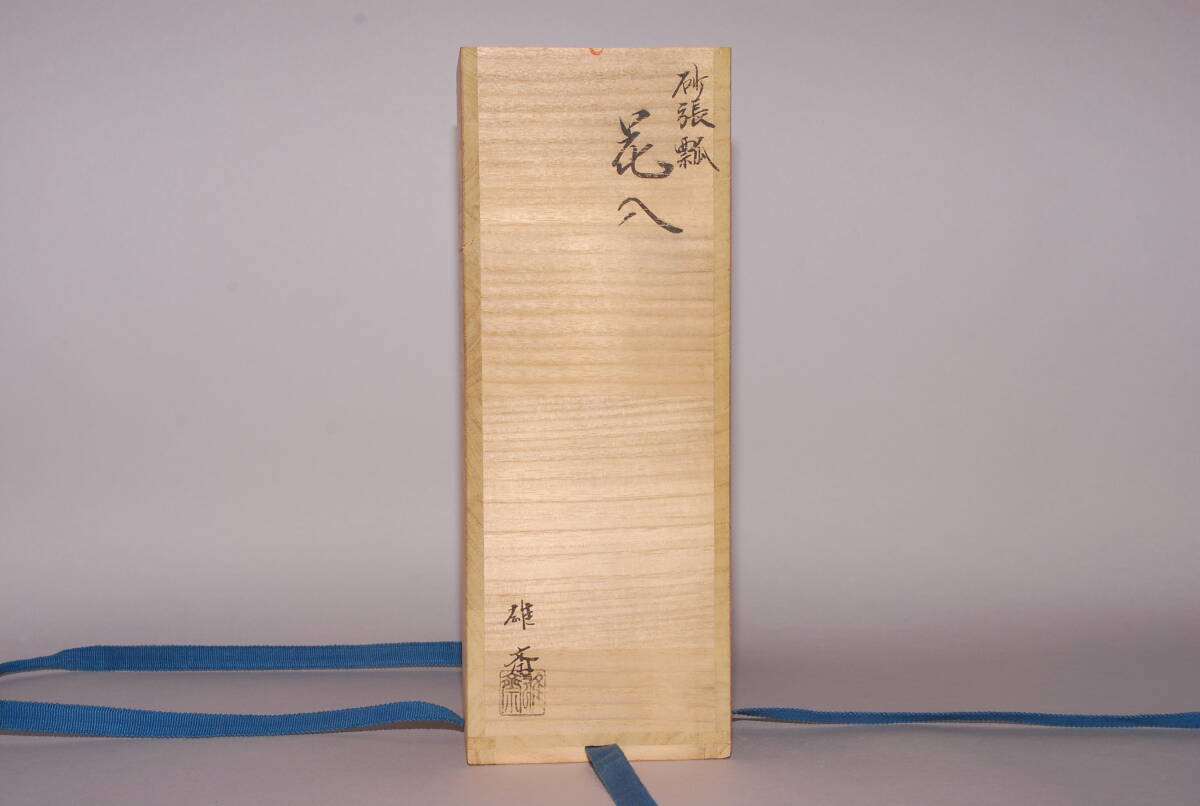 砂張瓢
花入
雄斎